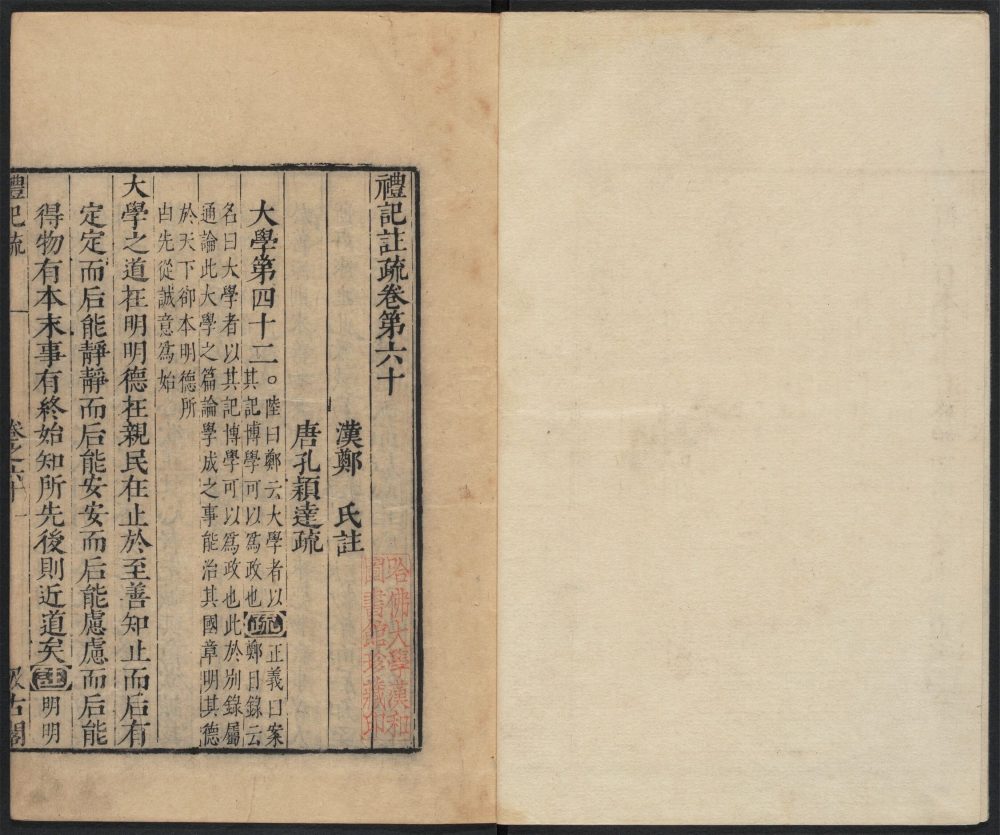 禮記註疏卷第六十
漢鄭 氏註
唐孔穎達疏
大學第四十二。陸曰鄭云大學者以
其記博學可以爲政也疏正義曰案
鄭目錄云
名曰大學者以其記博學可以爲政也此於別錄屬
通論此大學之篇論學成之事能治其國章明其德
於天下卻本明德所
由先從誠意爲始
大學之道在明明德在親民在止於至善知止而后有
定定而后能靜靜而后能安安而后能慮慮而后能
得物有本末事有終始知所先後則近道矣註明明
禮記疏
卷之六十
一
汲古閣
哈佛大學漢和
圖書館珍藏印